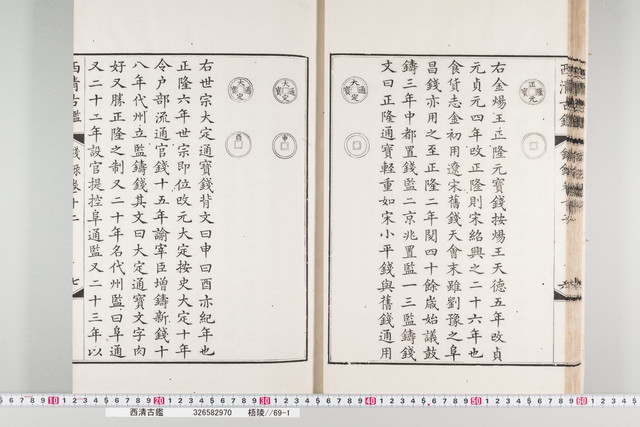 正隆元寶
右金煬王正隆元寶錢按煬王天德五年改貞
元貞元四年改正隆則宋紹興之二十六年也
食貨志金初用遼宋舊錢天會末雖劉豫之阜
昌錢亦用之至正隆二年閱四十餘歲始議鼓
鑄三年中都置錢監二京兆置監一三監鑄錢
文曰正隆通寶輕重如宋小平錢與舊錢通用
大定通寶
大定通寶
申
大定通寶
酉
右世宗大定通寶錢背文曰申曰酉亦紀年也
正隆六年世宗即位改元大定按史大定十年
令户部流通官錢十五年諭宰臣增鑄新錢十
八年代州立監鑄錢其文曰大定通寶文字肉
好又勝正隆之制又二十年名代州監曰阜通
又二十二年設官提控阜通監又二十三年以
西清古鑑
錢錄卷十二
七
西清古鑑 326582970 梧陵//69-1